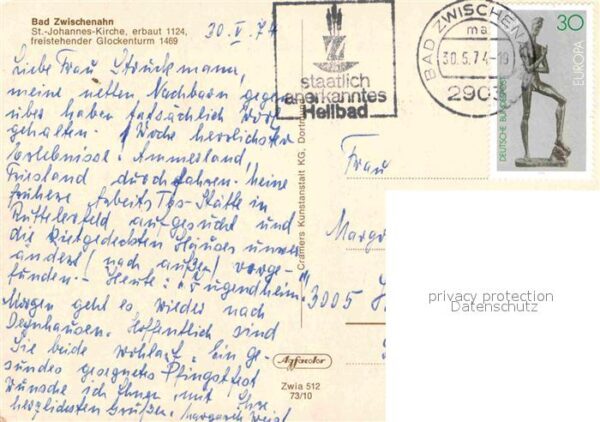 Bad Zwischenahn
St.-Johannes-Kirche, erbaut 1124,
freistehender Glockenturm 1469
30. V. 74
Liebe Frau Struckmann,
meine netten Nachbarn gegen
über haben tatsächlich Wort
gehalten. 1 Woche herrlichster
Erlebnisse: Ammerland,
Friesland durchfahren. Meine
frühere Arbeits Stätte in
aufgesucht und
die Rietgedeckten Häuser unver
ändert (nach außen) vorge-
funden. – Heute: Jugendheim.
Morgen geht es wieder nach
Oeynhausen. Hoffentlich sind
Sie beide wohlauf. Ein ge-
sundes gesegnetes Pfingstfest
wünsche ich Ihnen mit
herzlichsten Grüßen. Ihre
Margarete
staatlich
anerkanntes
Heilbad
BAD ZWISCHEN
ma
30.5.74-19
2903
30
EUROPA
DEUTSCHE BUNDESPOST
Cramers Kunstanstalt KG, Dortmund
Frau
Margar
3005 H
Agfacolor
Zwia 512
73/10
privacy protection
Datenschutz